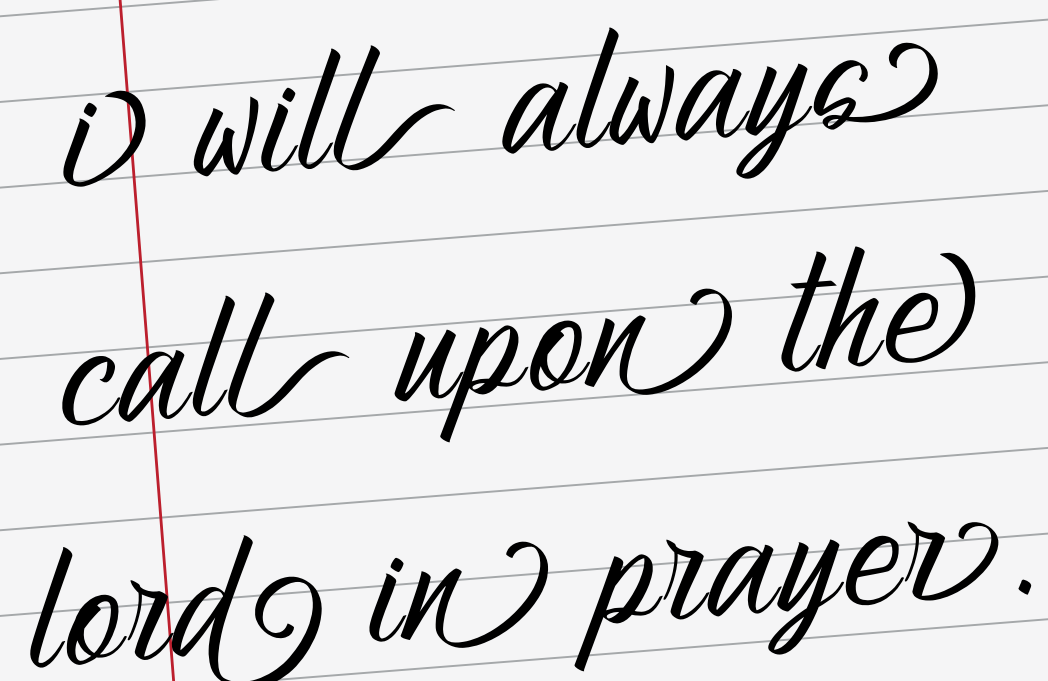 i will always
call upon the
lord in prayer.